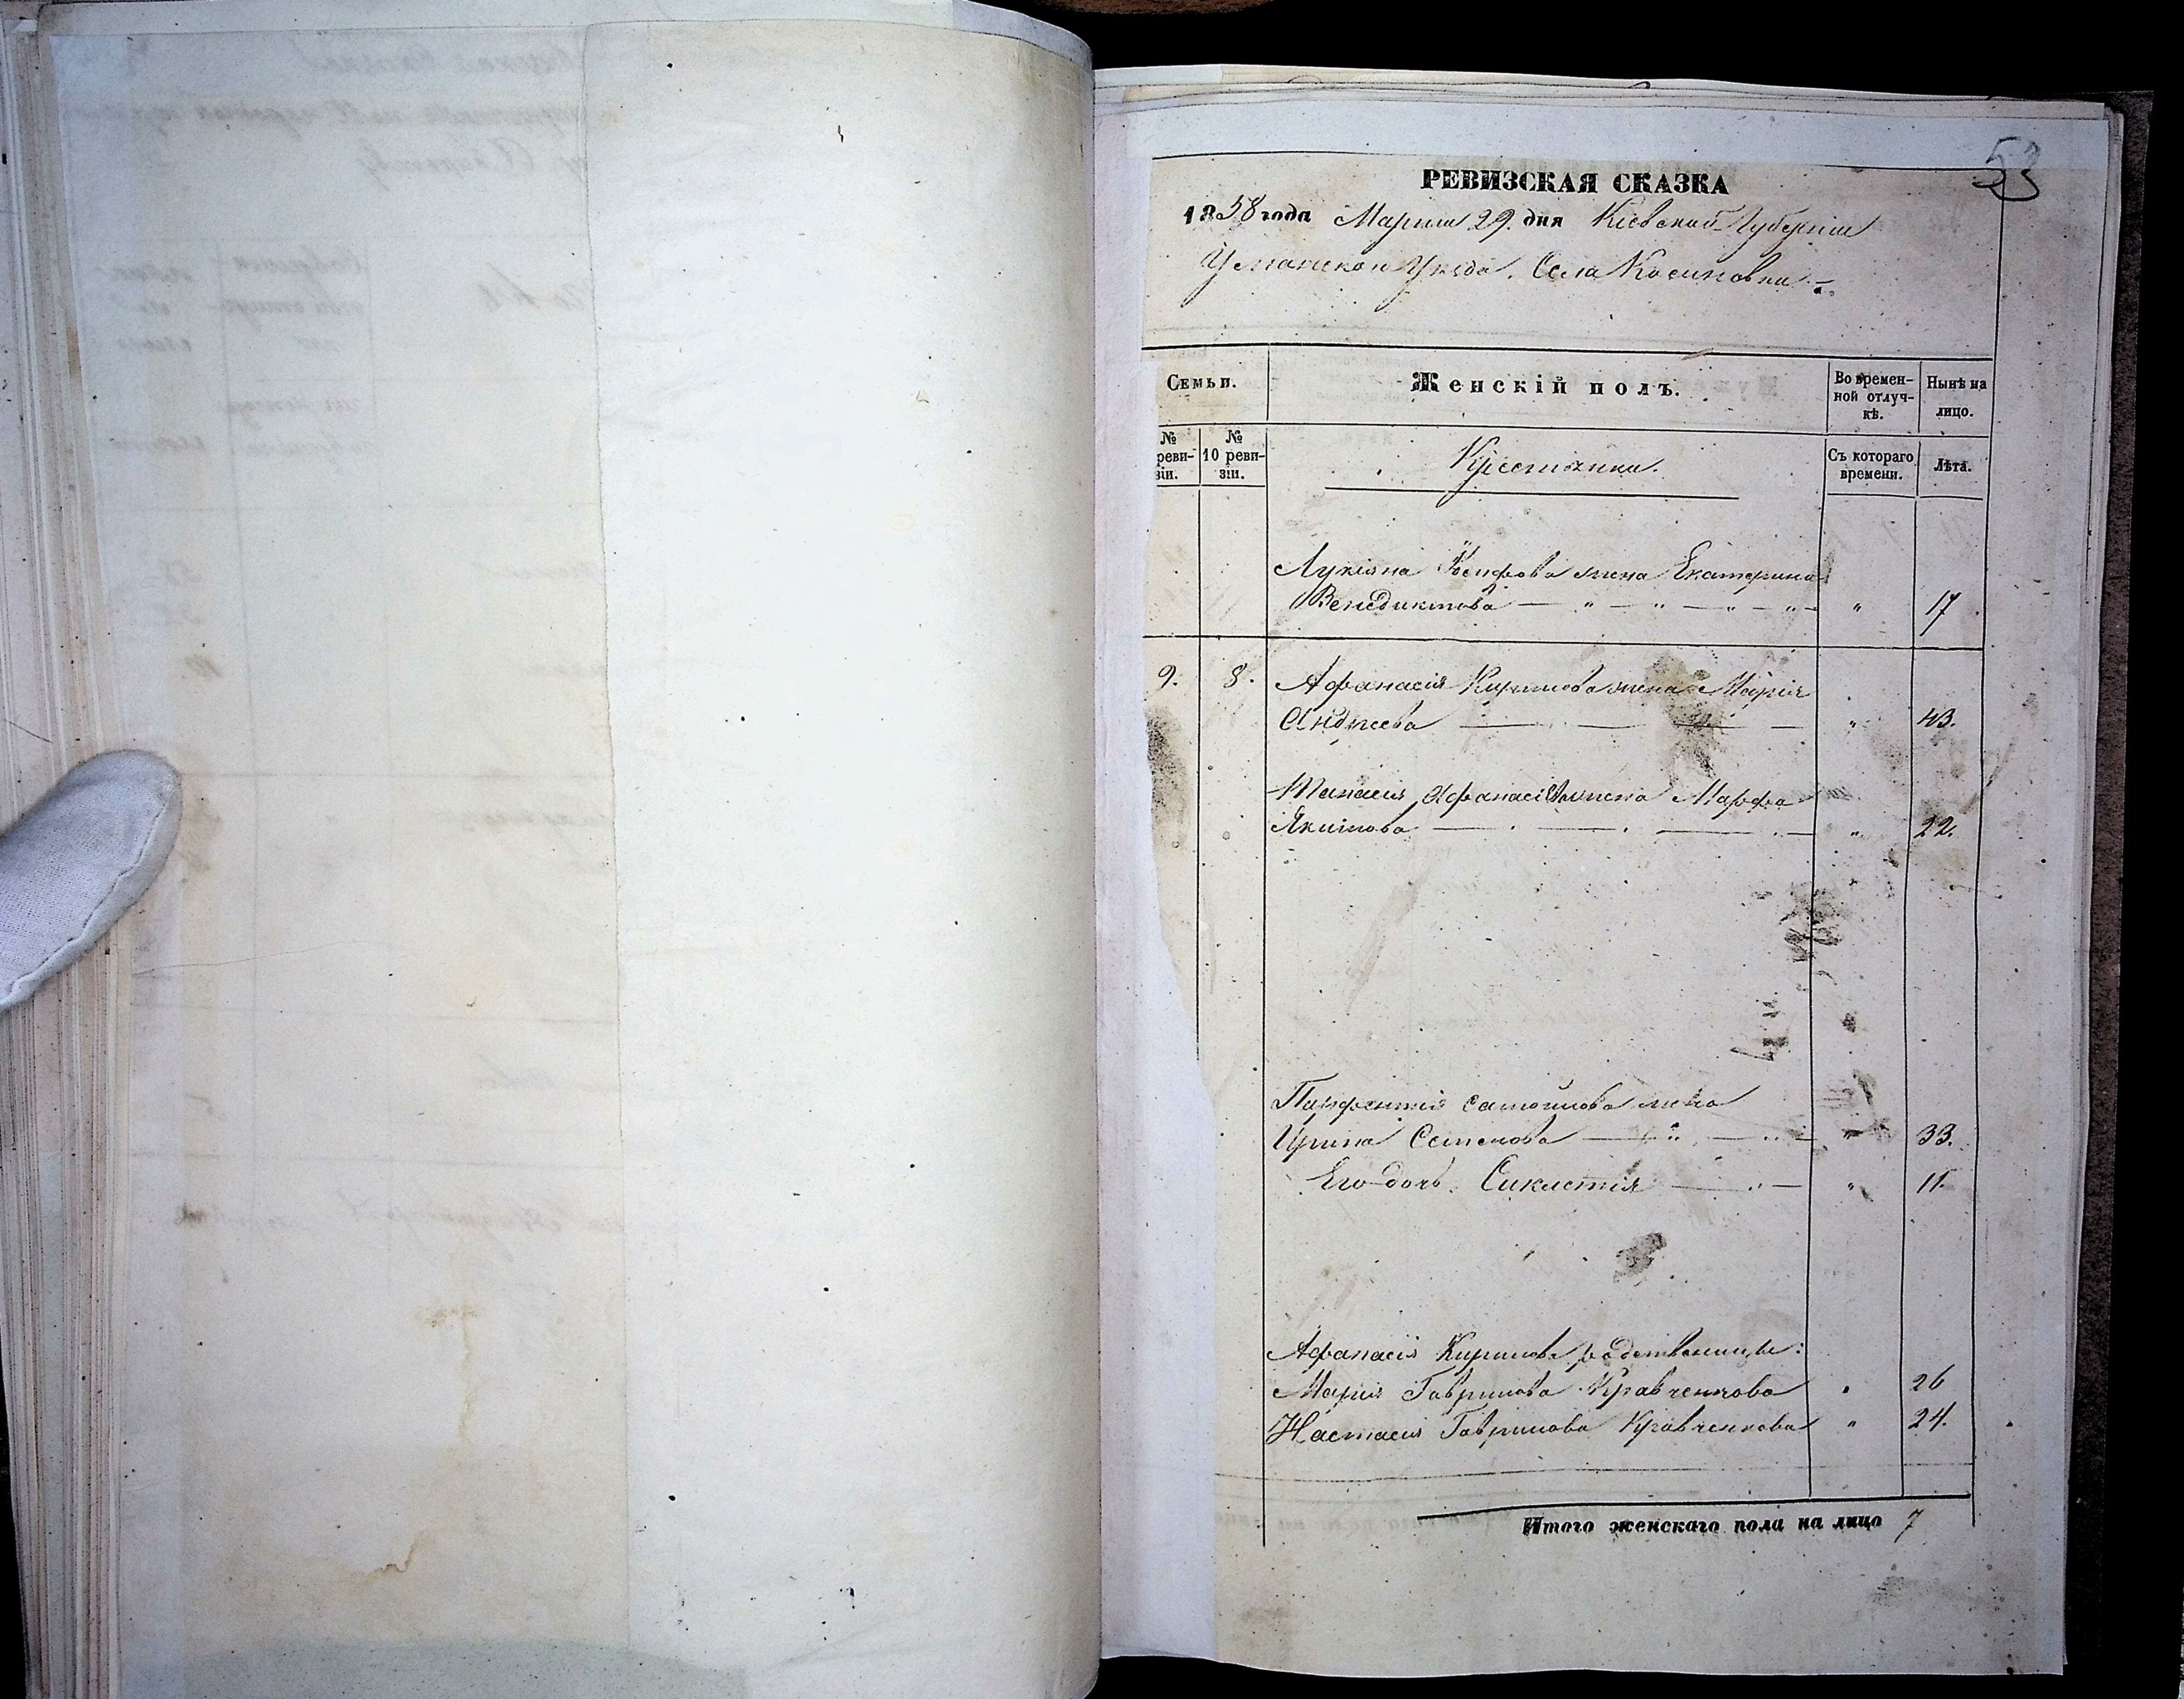 53
РЕВИЗСКАЯ СКАЗКА
1858 года Марта 29. дня Кіевской Губерніи
Уманскаго Уѣзда. Села Косиновки
Семьи.
Женскій полъ.
Во времен-
ной отлуч-
кѣ.
Нынѣ на
лицо.
№
реви-
зіи.
№
10 реви-
зіи.
Крестьянки.
Съ котораго
времени.
Лѣта.
Лукіяна жена Екатерина
Венедиктова — " — " — " — " — " 17
9. 8. Афанасія Кирилова жена Марія
Андреева — — — " 43.
Афанасіева жена Марфа
Якимова — . — . — . — " 22.
Парфентія Самойлова жена
Ирина Семенова — " — " — " 33.
Его дочь. — " — " 11.
Афанасія Кирилова родственницы:
Марія Гаврилова Кравченкова " 26
Настасія Гаврилова Кравченкова " 24.
Итого женскаго пола на лицо 7